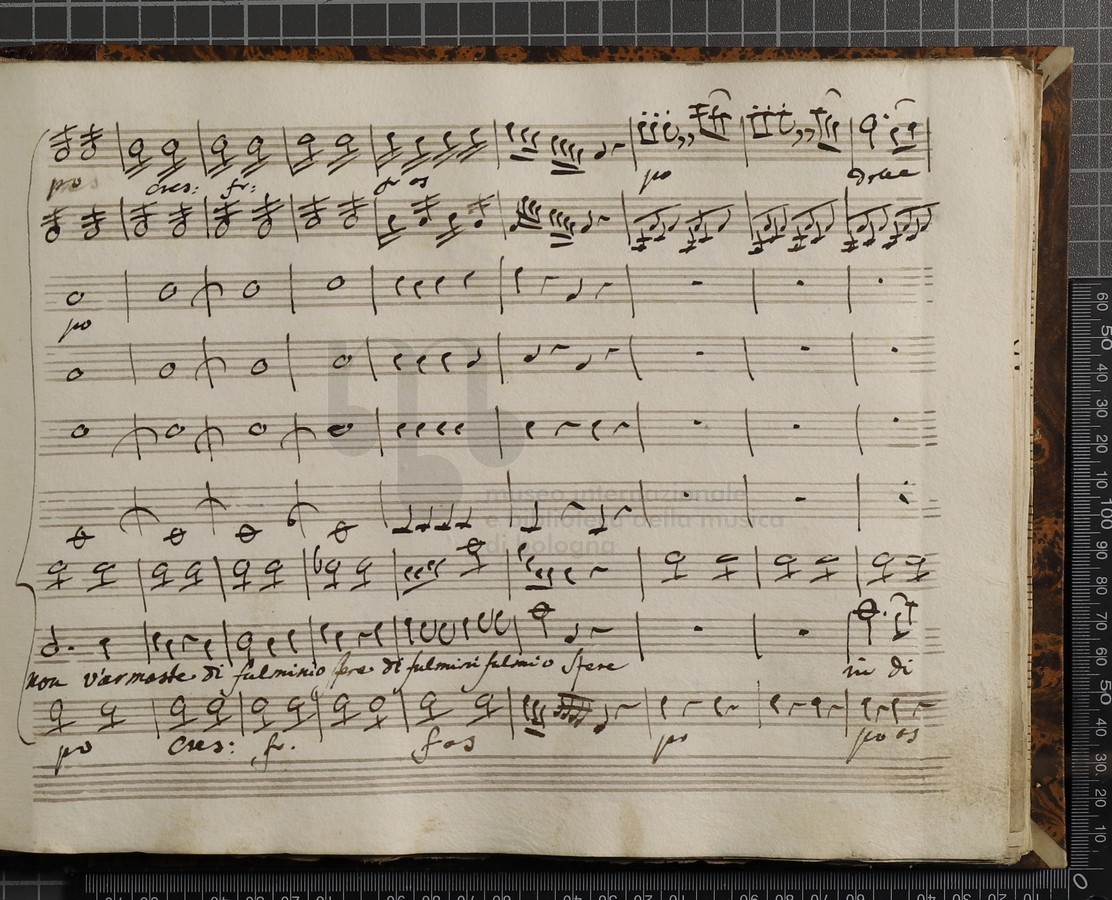 po cres: fr: fos po dolce
po
museo internazionale
e biblioteca della musica
di bologna
non v'armaste di fulmini o sfere di fulmini fulmi o sfere in di
po cres: f. fos po po os
60 50 40 30 20 10 100 90 80 70 60 50 40 30 20 10 0